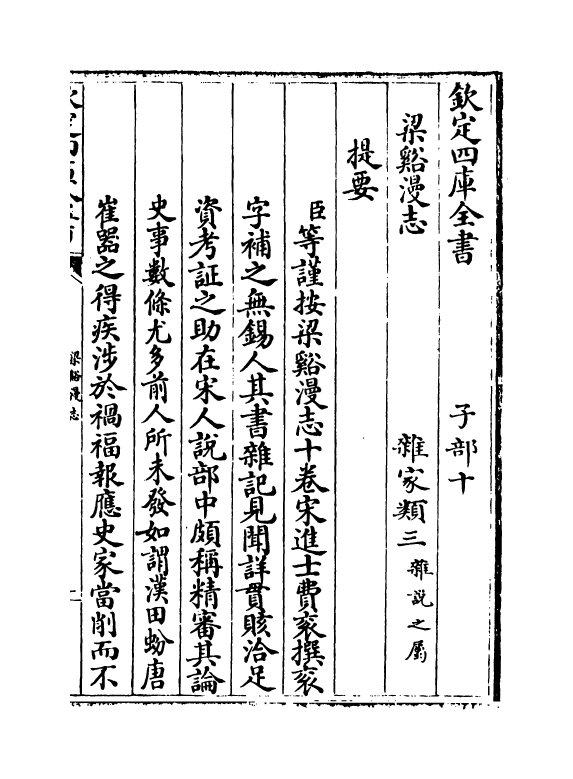 欽定四庫全書　子部十
梁谿漫志　雜家類三雜說之屬
提要
臣等謹按梁谿漫志十卷宋進士費袞撰袞
字補之無錫人其書雜記見聞詳貫賅洽足
資考証之助在宋人說部中頗稱精審其論
史事數條尤多前人所未發如謂漢田蚡唐
崔器之得疾涉於禍福報應史家當削而不
梁谿漫志